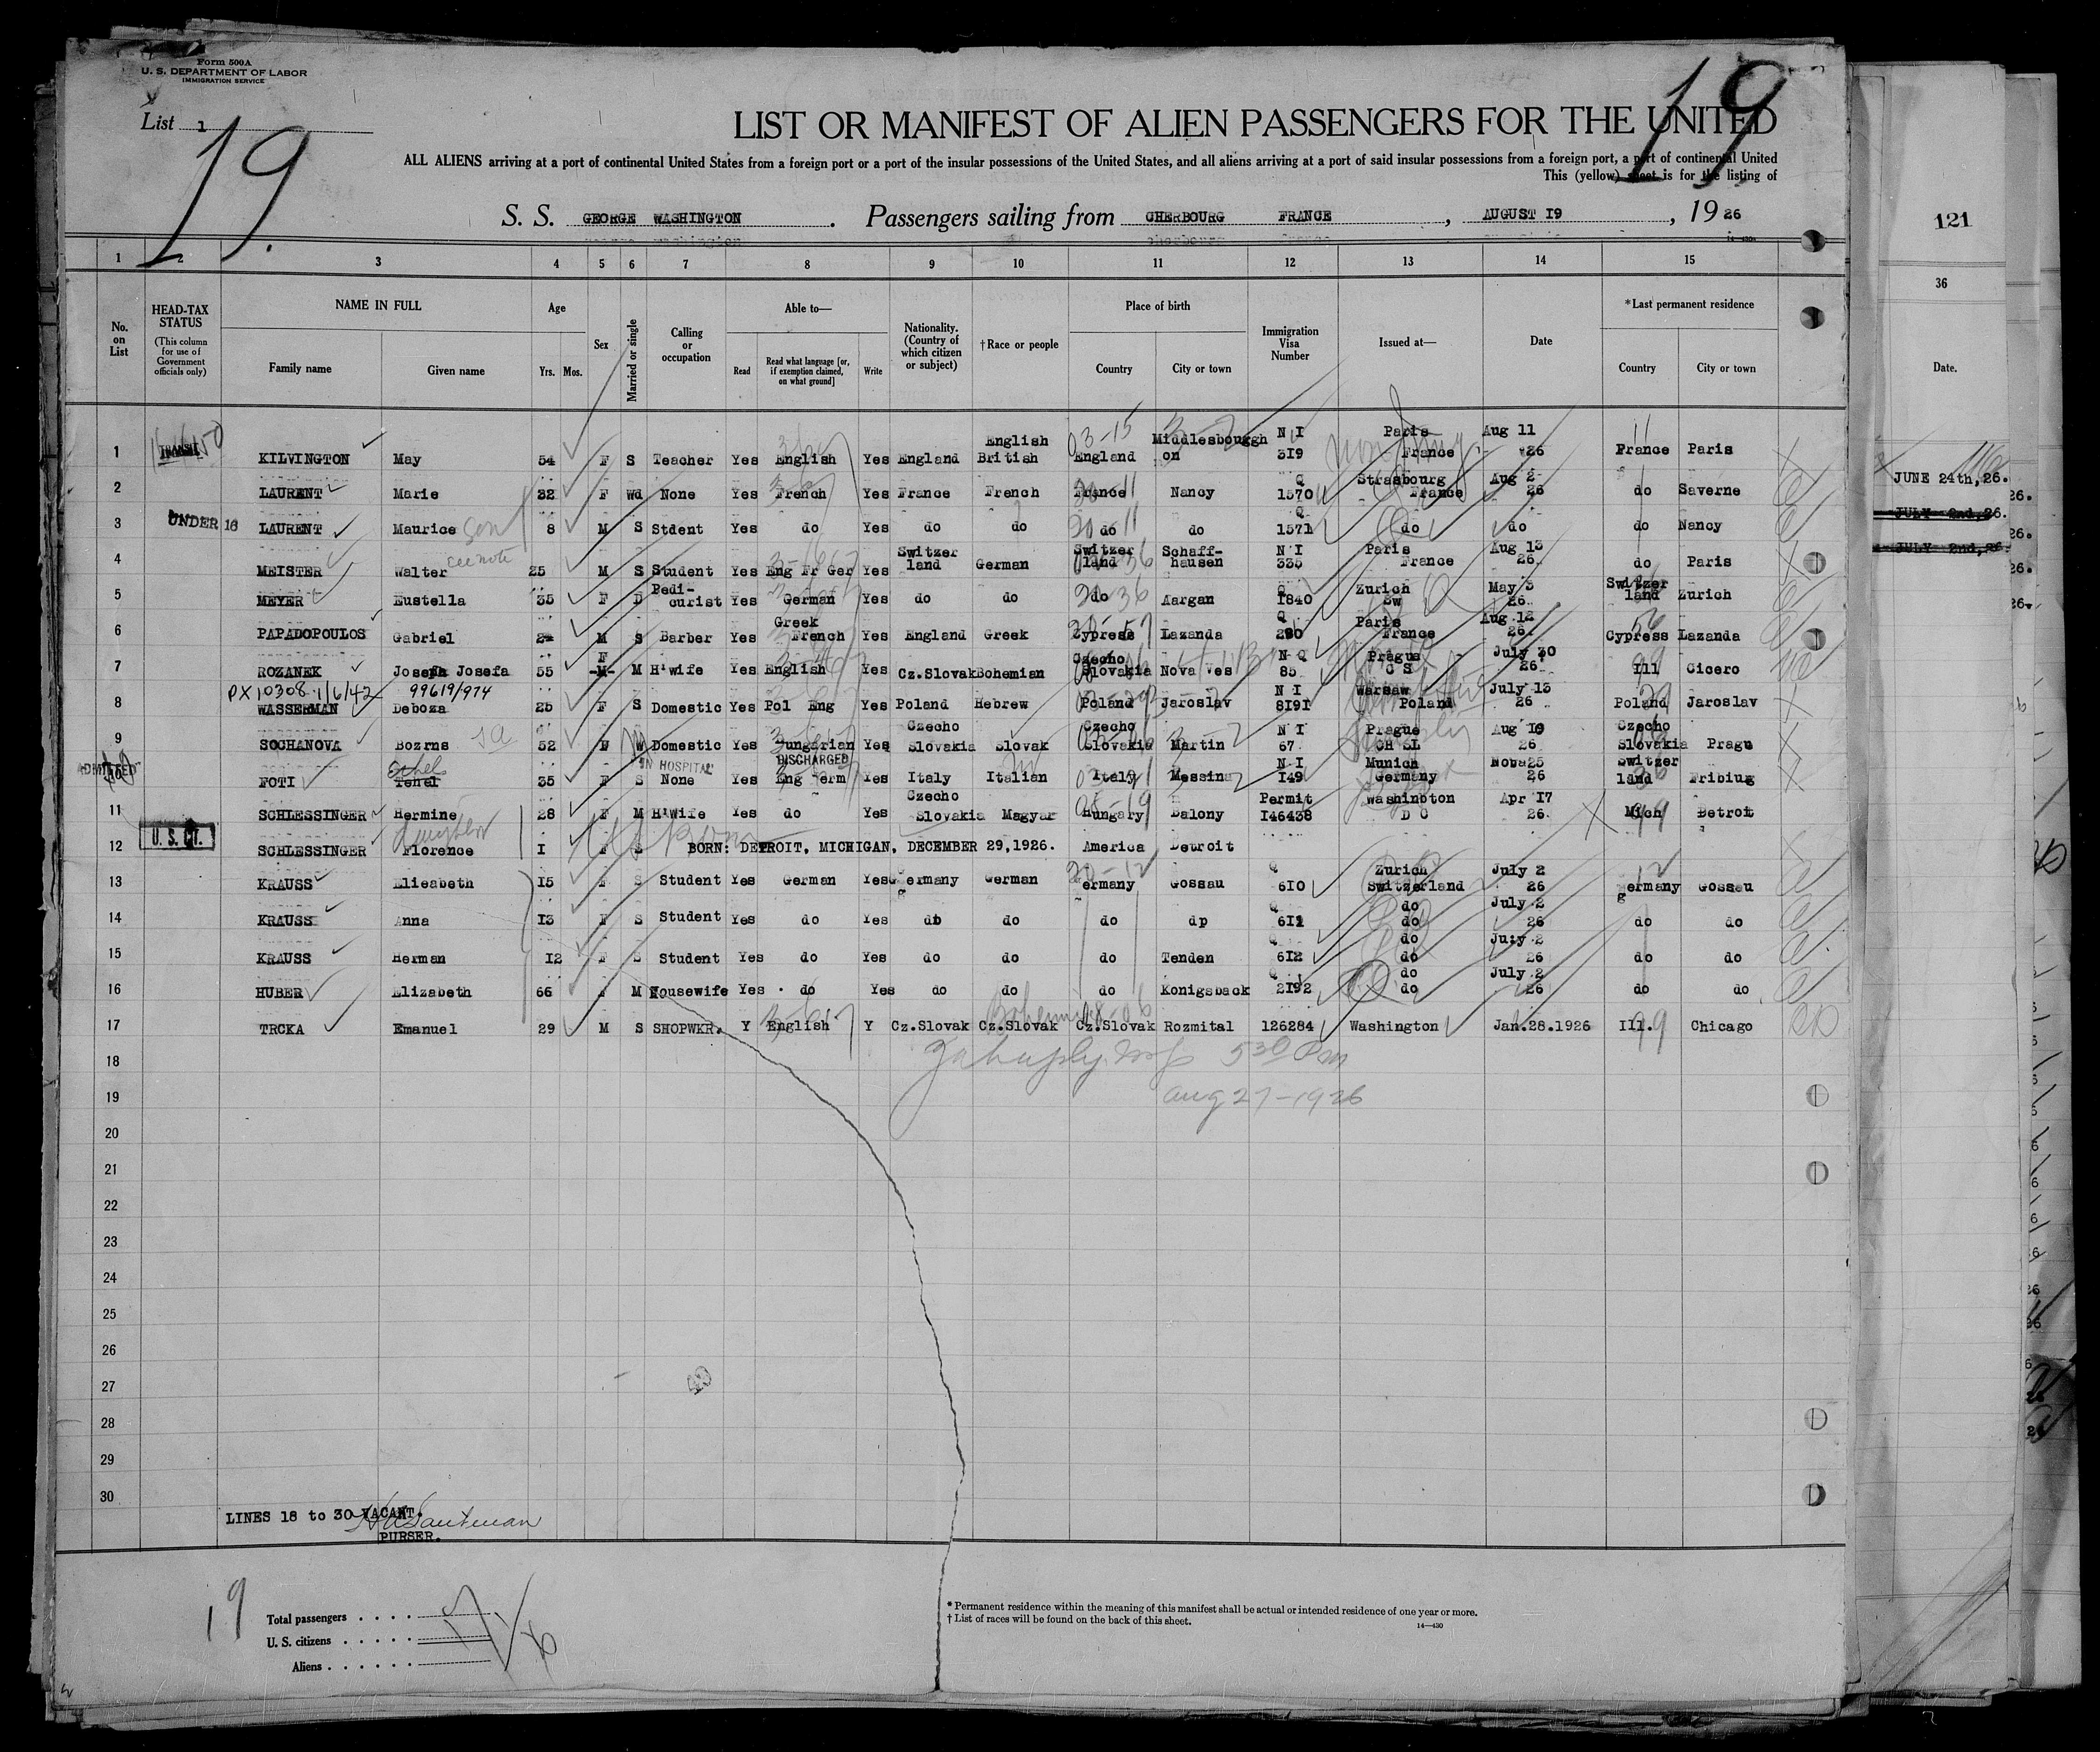 Form 500A
U. S. DEPARTMENT OF LABOR
IMMIGRATION SERVICE
List 1
19
19
LIST OR MANIFEST OF ALIEN PASSENGERS FOR THE UNITED
ALL ALIENS arriving at a port of continental United States from a foreign port or a port of the insular possessions of the United States, and all aliens arriving at a port of said insular possessions from a foreign port, a port of continental United
This (yellow) sheet is for the listing of
S. S. GEORGE WASHINGTON. Passengers sailing from CHERBOURG FRANCE, AUGUST 19, 1926
121
1 2 3 4 5 6 7 8 9 10 11 12 13 14 15
36
No. on List
HEAD-TAX STATUS (This column for use of Government officials only)
NAME IN FULL
Family name
Given name
Age
Yrs. Mos.
Sex
Married or single
Calling or occupation
Able to—
Read
Read what language [or, if exemption claimed, on what ground]
Write
Nationality. (Country of which citizen or subject)
†Race or people
Place of birth
Country
City or town
Immigration Visa Number
Issued at—
Date
*Last permanent residence
Country
City or town
Date.
1 TRANSIT KILVINGTON May 54 F S Teacher Yes English Yes England English British England Middlesbouggh on N I 319 Paris France Aug 11 26 France Paris
2 LAURENT Marie 32 F Wd None Yes French Yes France French France Nancy Q 1570 Strasbourg France Aug 2 26 do Saverne
JUNE 24th, 26.
3 UNDER 16 LAURENT Maurice son 8 M S Stdent Yes do Yes do do do do Q 1571 do do do Nancy
JULY 2nd, 26.
4 MEISTER Walter see note 25 M S Student Yes Eng Fr Ger Yes Switzer land German Switzer land Schaff- hausen N I 335 Paris France Aug 13 26 do Paris
JULY 2nd, 26.
5 MEYER Eustella 35 F D Pedi- curist Yes German Yes do do do Aargan Q 1840 Zurich Sw May 3 26 Switzer land Zurich
6 PAPADOPOULOS Gabriel M S Barber Yes Greek French Yes England Greek Cypress Lazanda Q 290 Paris France Aug 12 26 Cypress Lazanda
7 ROZANEK Joseph Josefa 55 F M M H'wife Yes English Yes Cz.Slovak Bohemian Czecho Slovakia Nova Ves N Q 85 Prague C S July 30 26 Ill Cicero
PX10308 1/6/42 99619/974
8 WASSERMAN Deboza 25 F S Domestic Yes Pol Eng Yes Poland Hebrew Poland Jaroslav N I 8191 Warsaw Poland July 13 26 Poland Jaroslav
9 SOCHANOVA Bozrns 52 W Domestic Yes Hungarian Yes Czecho Slovakia Slovak Czecho Slovakia Martin N I 67 Prague CH SL Aug 10 26 Czecho Slovakia Pragu
ADMITTED IN HOSPITAL DISCHARGED
10 FOTI Ethel 35 F S None Yes Eng Germ Yes Italy Italian Italy Messina N I 149 Munich Germany 26 Switzer land Fribiug
11 SCHLESSINGER Hermine 28 F M H'Wife Yes do Yes Czecho Slovakia Magyar Hungary Dalony Permit 146438 Washington D C Apr 17 26 Mich Detroit
U. S. CT.
12 SCHLESSINGER Florence daughter 1 F S BORN: DETROIT, MICHIGAN, DECEMBER 29,1926. America Detroit
13 KRAUSS Elieabeth 15 F S Student Yes German Yes Germany German Germany Gossau Q 610 Zurich Switzerland July 2 26 Germany Gossau
14 KRAUSS Anna 13 F S Student Yes do Yes do do do dp Q 611 do do July 2 26 do do
15 KRAUSS Herman 12 F S Student Yes do Yes do do do Tenden Q 612 do do July 2 26 do do
16 HUBER Elizabeth 66 F M Housewife Yes do Yes do do do Konigsback Q 2192 do do July 2 26 do do
17 TRCKA Emanuel 29 M S SHOPWKR. Y English Y Cz.Slovak Cz.Slovak Cz.Slovak Rozmital 126284 Washington Jan.28.1926 Ill. Chicago
18
5 30 Pm
19
Aug 27-1926
20
21
22
23
24
25
26
27
28
29
30
LINES 18 to 30 VACANT.
PURSER.
19
Total passengers
U. S. citizens
Aliens
17
* Permanent residence within the meaning of this manifest shall be actual or intended residence of one year or more.
† List of races will be found on the back of this sheet.
14—430